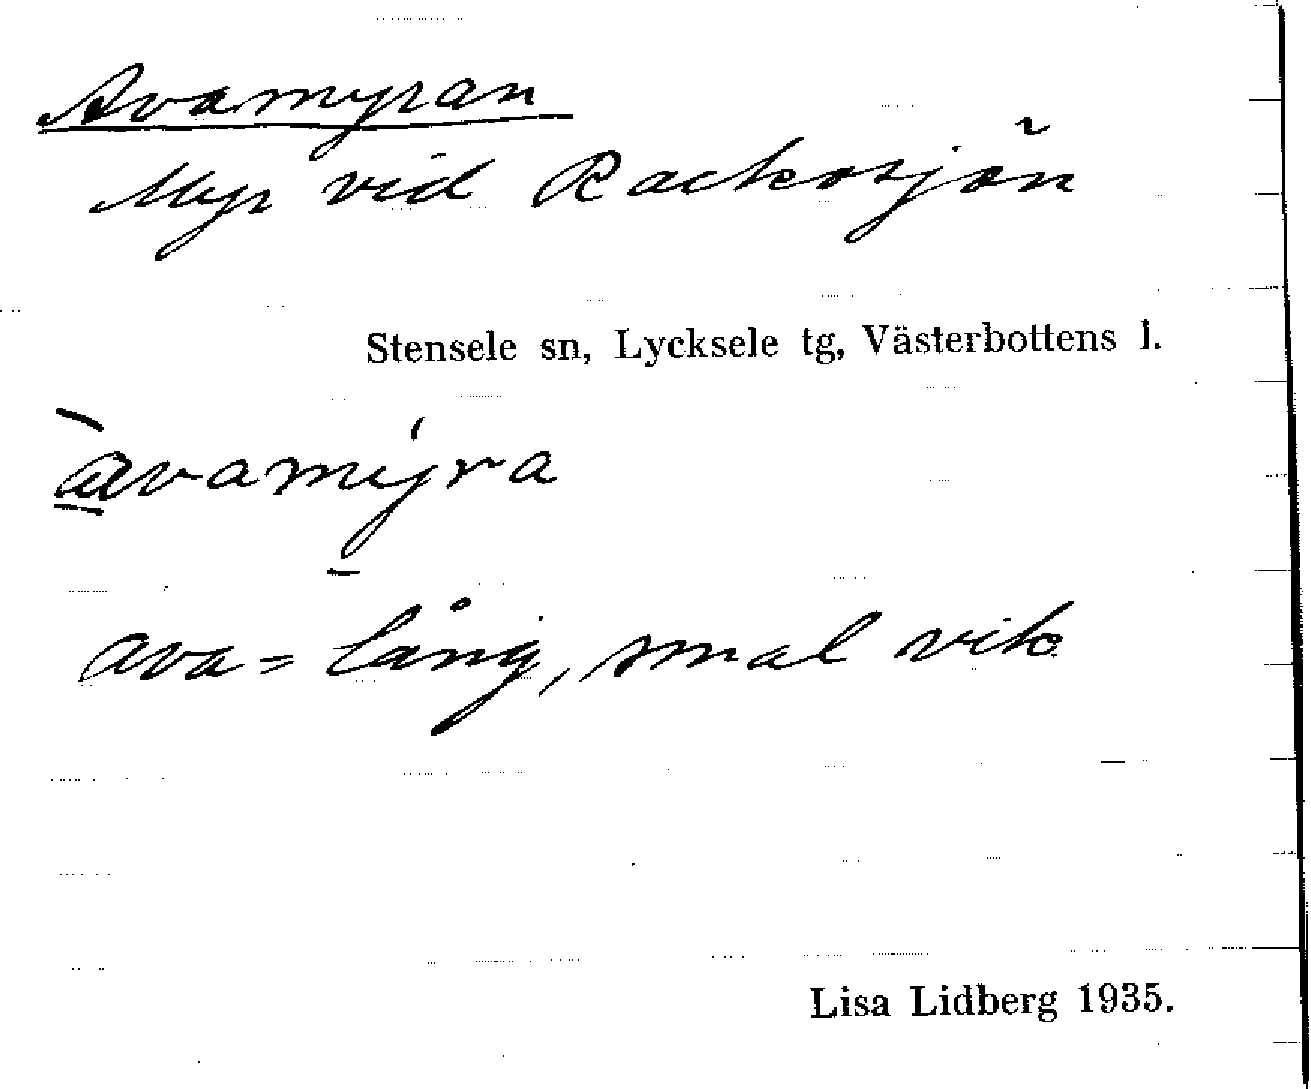 Avamyran
Myr vid Rackosjön
Stensele sn, Lycksele tg, Västerbottens l.
àvamýra
ava = lång, smal vik
Lisa Lidberg 1935.